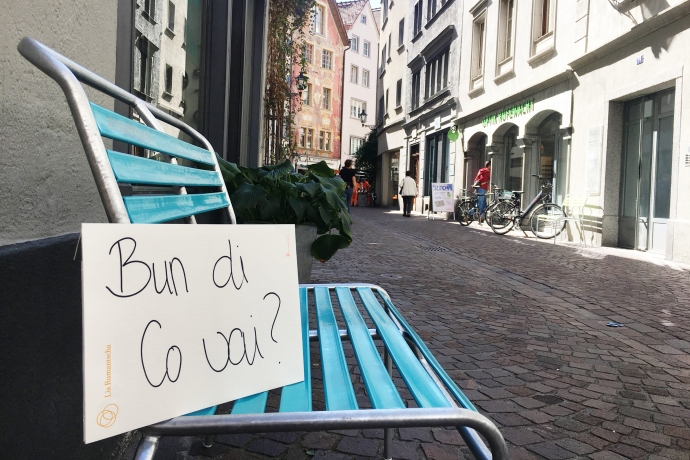 Bun di
Co vai?
Lia Rumantscha